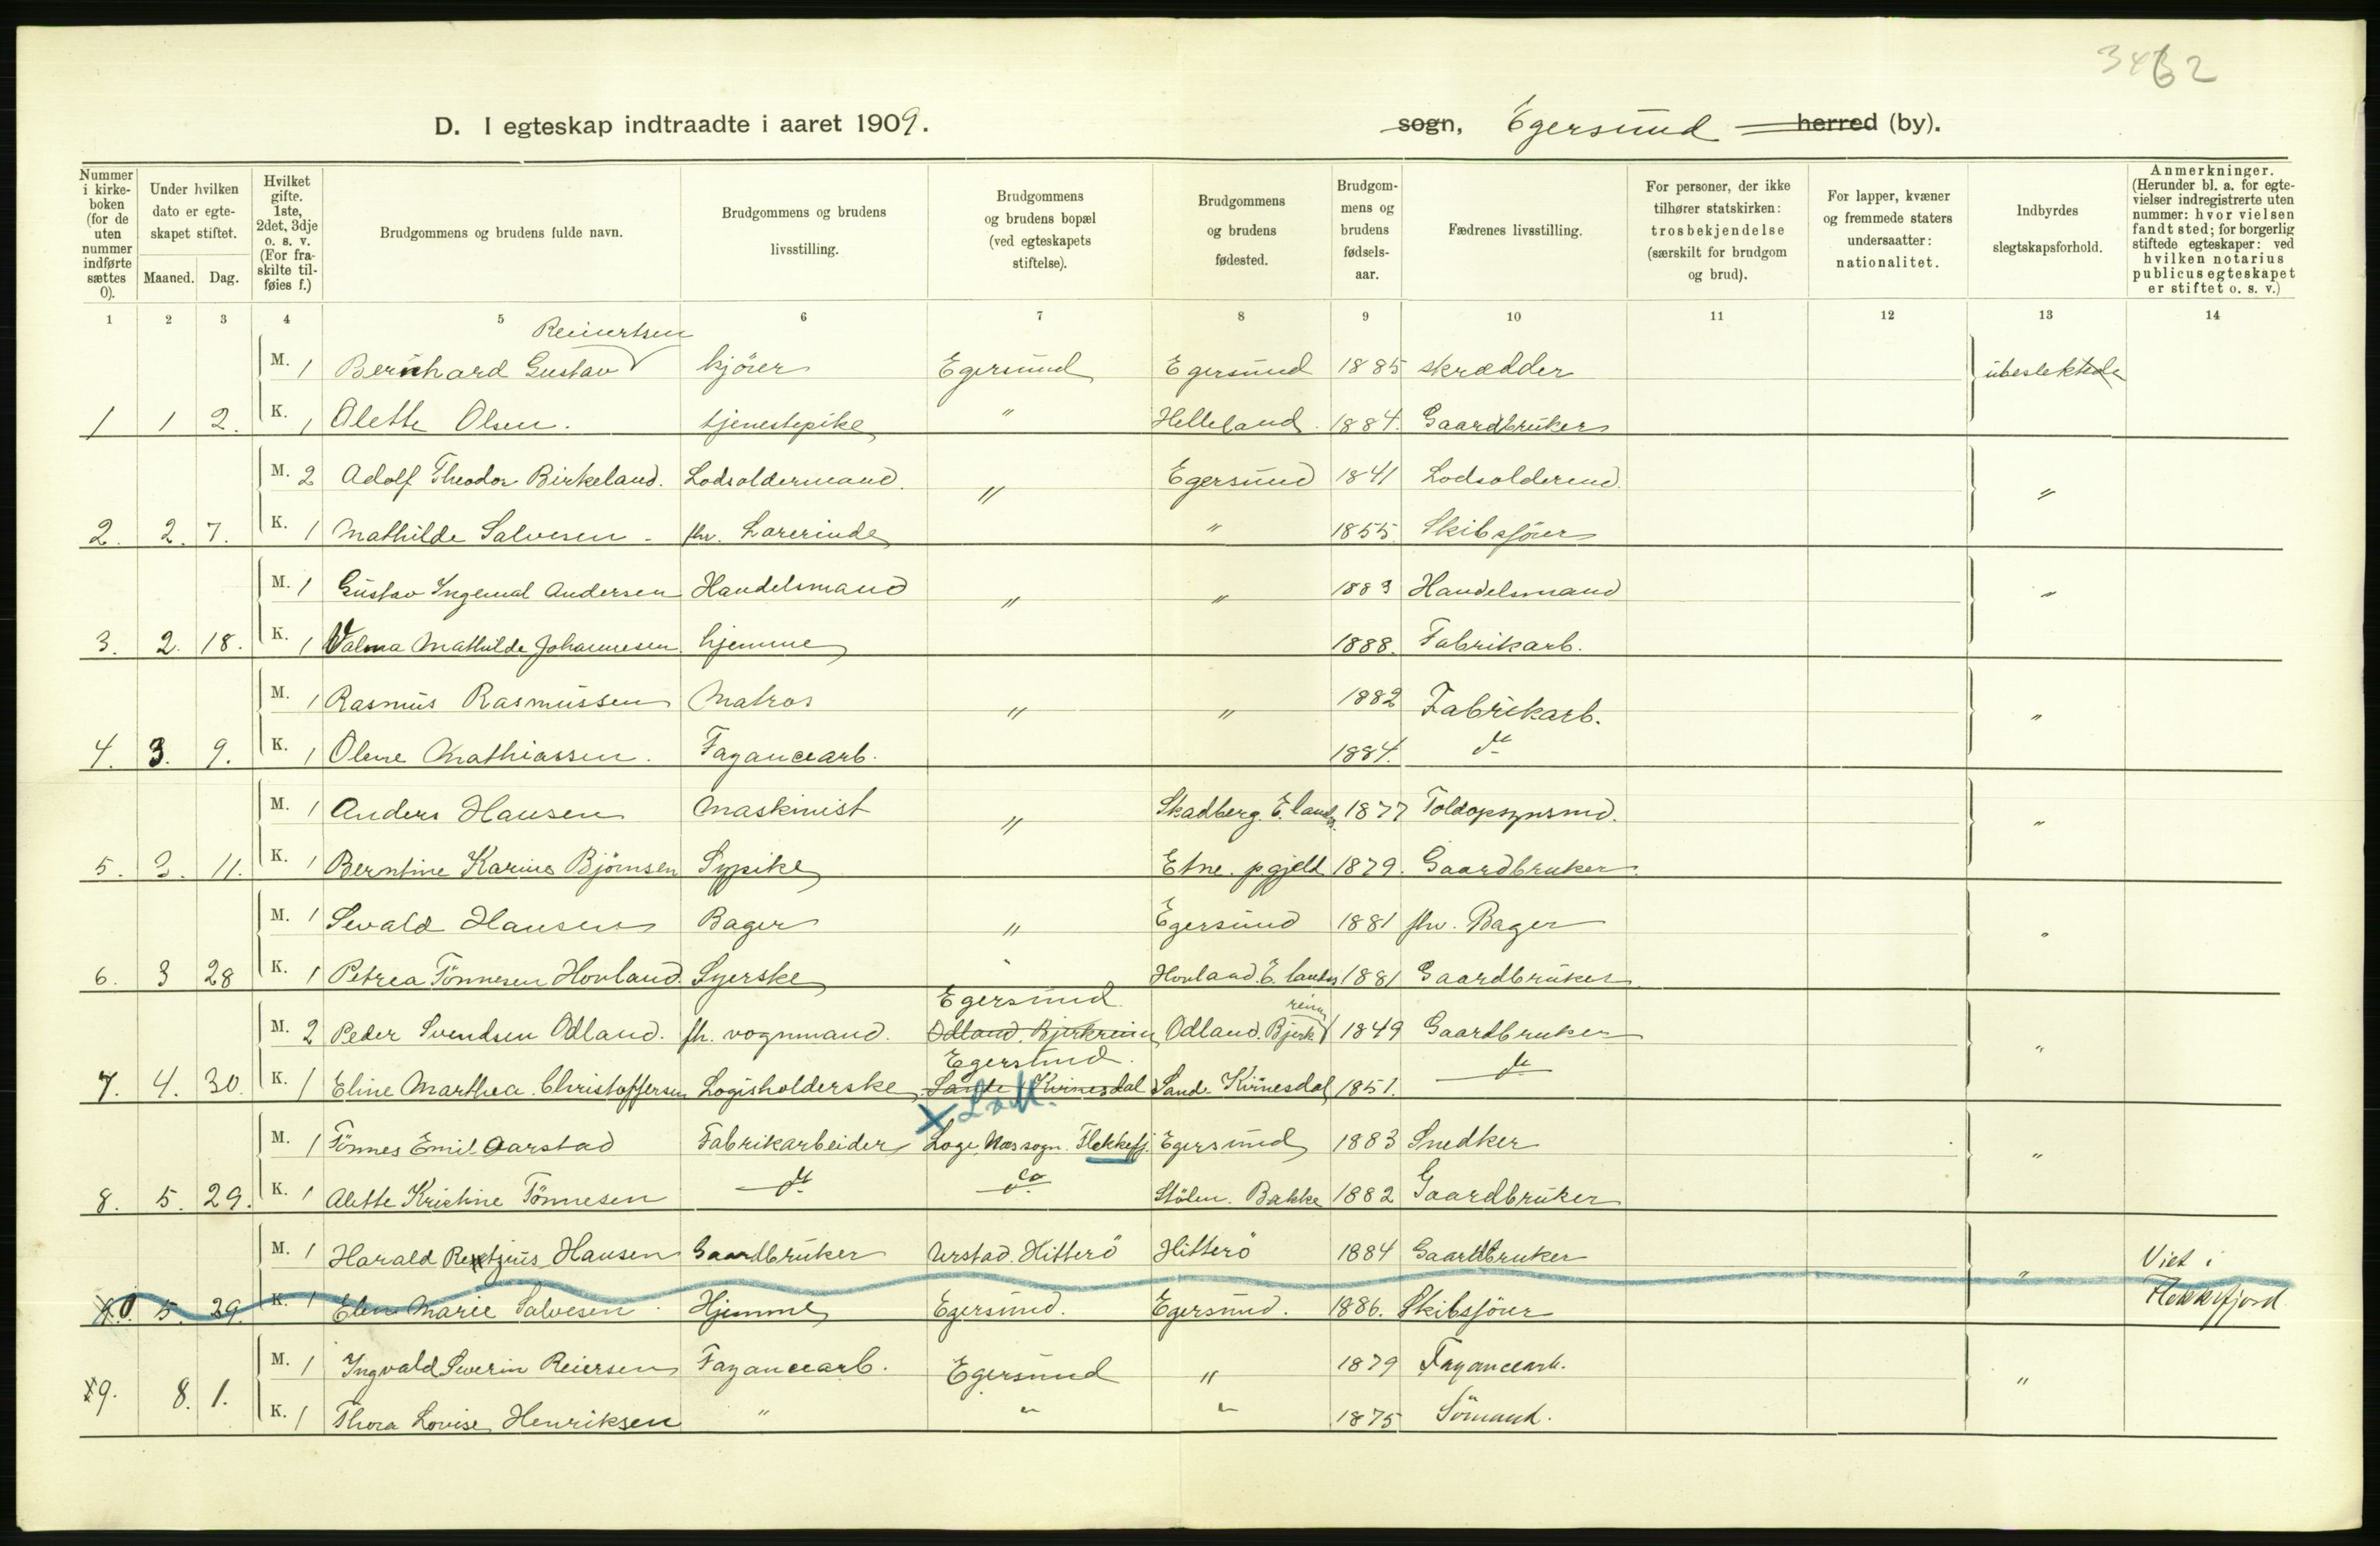 3462
D. I egteskap indtraadte i aaret 1909.
sogn, Egersund herred (by).
Nummer i kirkeboken (for de uten nummer indførte sættes 0).
Under hvilken dato er egteskapet stiftet.
Maaned. Dag.
Hvilket gifte. 1ste, 2det, 3dje o. s. v. (For fraskilte tilføies f.)
Brudgommens og brudens fulde navn.
Brudgommens og brudens livsstilling.
Brudgommens og brudens bopæl (ved egteskapets stiftelse).
Brudgommens og brudens fødested.
Brudgommens og brudens fødselsaar.
Fædrenes livsstilling.
For personer, der ikke tilhører statskirken: trosbekjendelse (særskilt for brudgom og brud).
For lapper, kvæner og fremmede staters undersaatter: nationalitet.
Indbyrdes slegtskapsforhold.
Anmerkninger. (Herunder bl. a. for egtevielser indregistrerte uten nummer: hvor vielsen fandt sted; for borgerlig stiftede egteskaper: ved hvilken notarius publicus egteskapet er stiftet o. s. v.)
1 2 3 4 5 6 7 8 9 10 11 12 13 14
Reinertsen
M. 1 Bernhard Gustav kjörer Egersund Egersund 1885 skrædder ubeslektede
1 1 2. K. 1 Alette Olsen. tjenestepike " Helleland. 1884. Gaardbruker
M. 2 Adolf Theodor Birkeland. Lodsoldermand. " Egersund 1841 Lodsoldermd. "
2. 2. 7. K. 1 Mathilde Salvesen fhv. Lærerinde " 1855 Skibsförer
M. 1 Gustav Ingemal Andersen Handelsmand " " 1883 Handelsmand "
3. 2. 18. K. 1 Valma Mathilde Johannesen. hjemme 1888. Fabrikarb.
M. 1 Rasmus Rasmussen Matros " " 1882 Fabrikarb. "
4. 3. 9. K. 1 Olene Mathiassen. Fayancearb. 1884. do
M. 1 Anders Hansen Maskinist " Skadberg. E. lands. 1877 Toldopsynsmd. "
5. 3. 11. K. 1 Berntine Karine Björnsen Sypike Etne. pgjeld 1879. Gaardbruker.
M. 1 Sevald Hansen Bager " Egersund 1881 fhv. Bager "
6. 3 28 K. 1 Petrea Tönnesen Hovland. Syerske " Hovland. E. lands 1881 Gaardbruker.
Egersund. reim
M. 2 Peder Svendsen Odland. fh. vognmand. Odland. Bjerkreim Odland. Bjerk 1849 Gaardbruker "
Egersund.
7. 4. 30. K. 1 Eline Marthea Christoffersen Logisholderske Sande Kvinesdal Sand. Kvinesdal 1851. do
M. 1 Tönnes Emil Aarstad Fabrikarbeider Loge, Næs sogn. Flekkefj. Egersund 1883 Snedker "
8. 5. 29. K. 1 Alette Kristine Tönnesen do do Stölen. Bakke 1882 Gaardbruker
M. 1 Harald Rextjus Hansen Gaardbruker Urstad. Hitterö Hitterö 1884 Gaardbruker " Viet i
0. 5. 29. K. 1 Elen Marie Salvesen. Hjemme Egersund. Egersund. 1886. Skibsförer Flekkefjord
M. 1 Ingvald Severin Reiersen Fayancearb. Egersund " 1879 Fayancearb. "
9. 8. 1. K. 1 Thora Lovise Henriksen " " " 1875 Sömand.